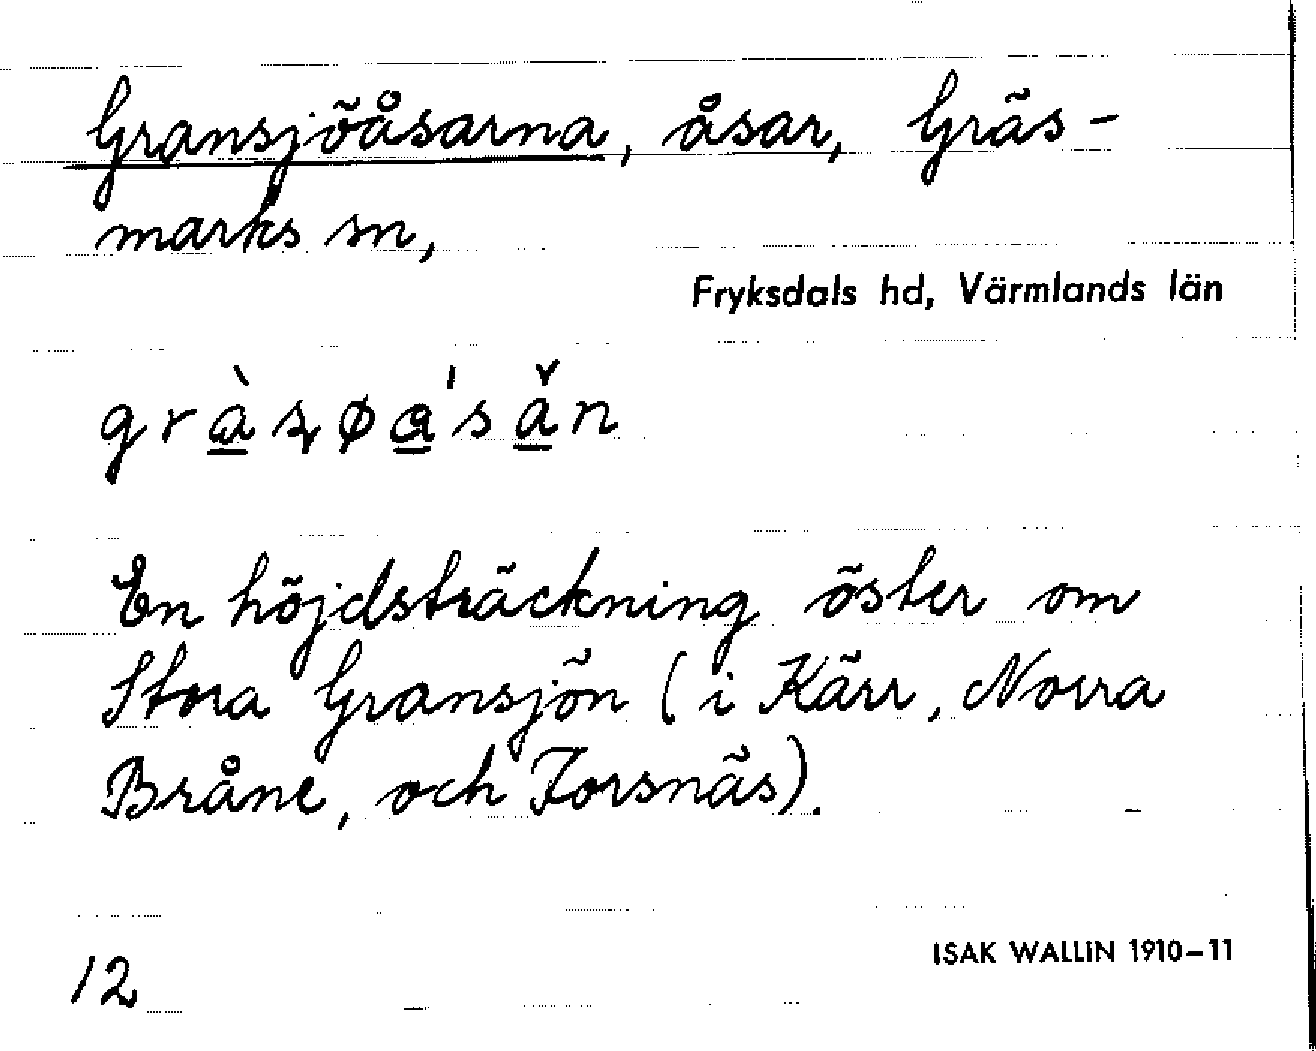 Gransjöåsarna, åsar, Gräs-
marks sn,
Fryksdals hd, Värmlands län
En höjdsträckning öster om
Stora Gransjön (i Kärr, Norra
Bråne, och Forsnäs).
ISAK WALLIN 1910–11
12